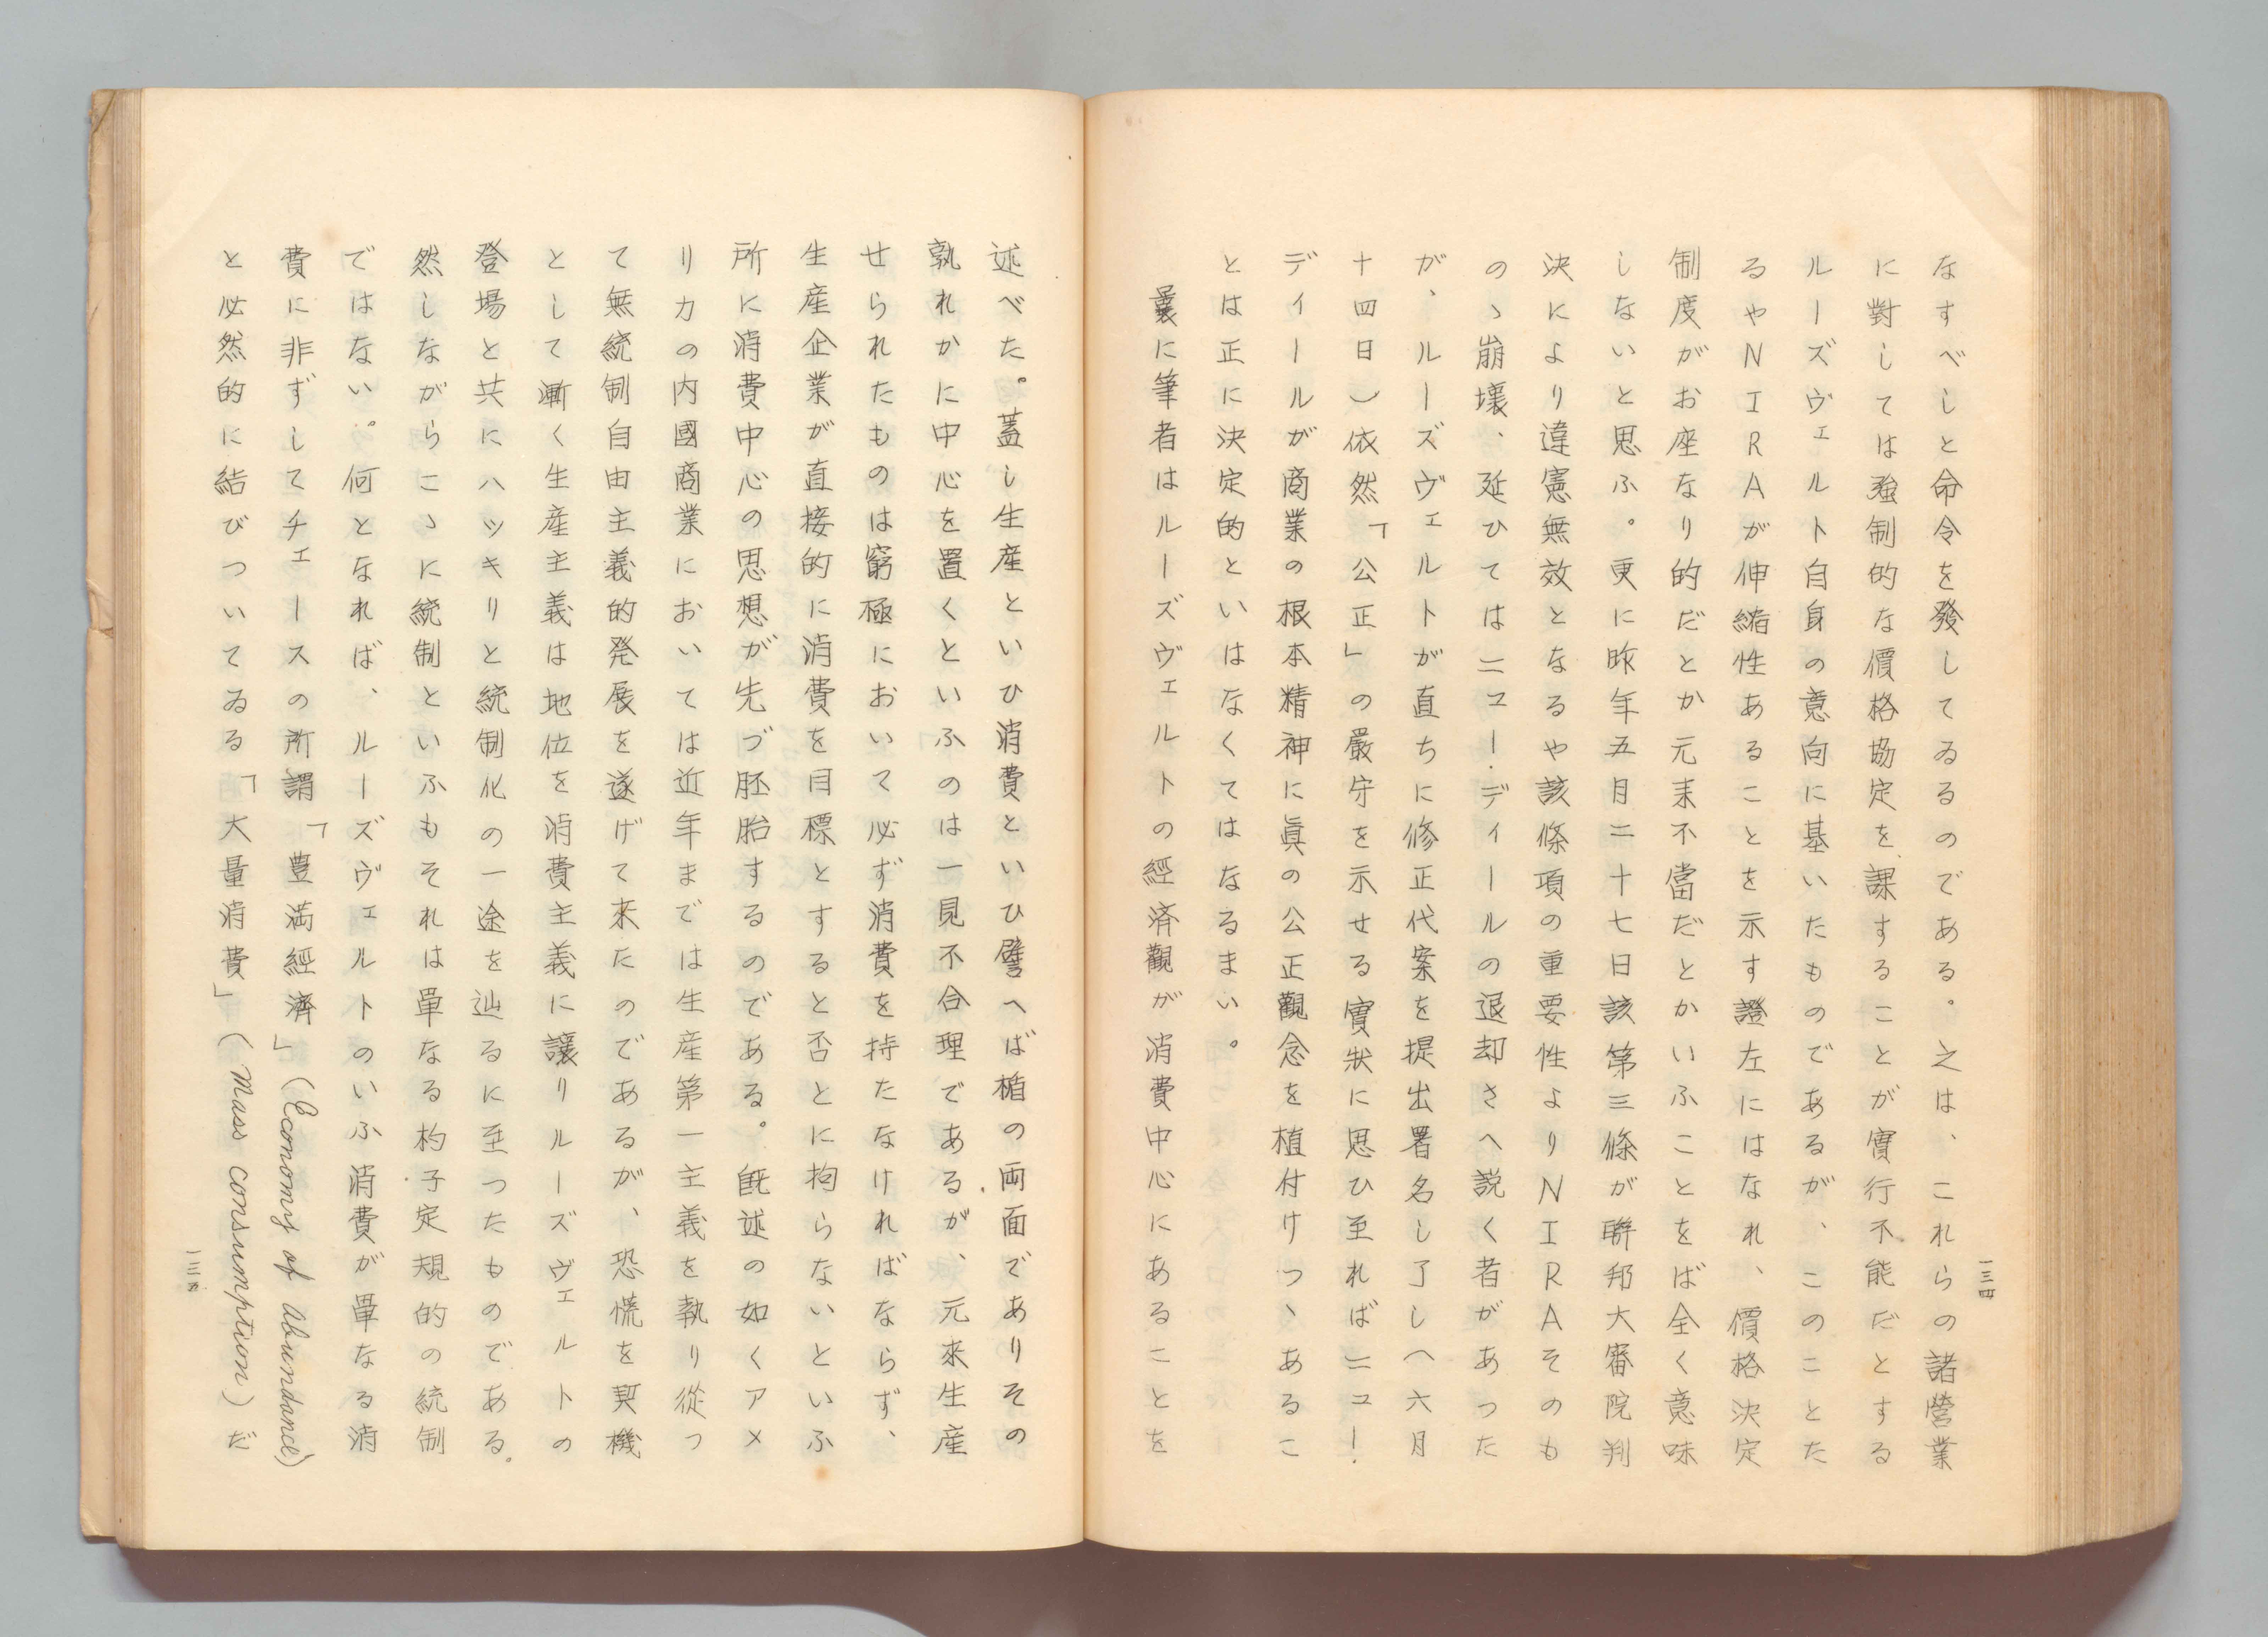 なすべしと命令を發してゐるのである。之は、これらの諸營業
に對しては強制的な價格協定を課することが實行不能だとする
ルーズヴェルト自身の意向に基いたものであるが、このことた
るやNIRAが伸縮性あることを示す證左にはなれ、價格決定
制度がお座なり的だとか元来不當だとかいふことをば全く意味
しないと思ふ。更に昨年五月二十七日該第三條が聯邦大審院判
決により違憲無效となるや該條項の重要性よりNIRAそのも
のゝ崩壞、延ひてはニュー・ディールの退却さへ説く者があつた
が、ルーズヴェルトが直ちに修正代案を提出署名し了し(六月
十四日)依然「公正」の嚴守を示せる實狀に思ひ至ればニュー・
ディールが商業の根本精神に眞の公正觀念を植付けつゝあるこ
とは正に決定的といはなくてはなるまい。
曩に筆者はルーズヴェルトの經済觀が消費中心にあることを
一三四
述べた。蓋し生産といひ消費といひ譬へば楯の両面でありその
孰れかに中心を置くといふのは一見不合理であるが、元來生産
せられたものは窮極において必ず消費を持たなければならず、
生産企業が直接的に消費を目標とすると否とに拘らないといふ
所に消費中心の思想が先づ胚胎するのである。既述の如くアメ
リカの内國商業においては近年までは生産第一主義を執り從つ
て無統制自由主義的発展を遂げて来たのであるが、恐慌を契機
として漸く生産主義は地位を消費主義に讓りルーズヴェルトの
登場と共にハツキリと統制化の一途を辿るに至つたものである。
然しながらこゝに統制といふもそれは單なる杓子定規的の統制
ではない。何となれば、ルーズヴェルトのいふ消費が單なる消
費に非ずしてチェースの所謂「豊満經濟」(Economy of Abundance)
と必然的に結びついてゐる「大量消費」(Mass consumption)だ
一三五